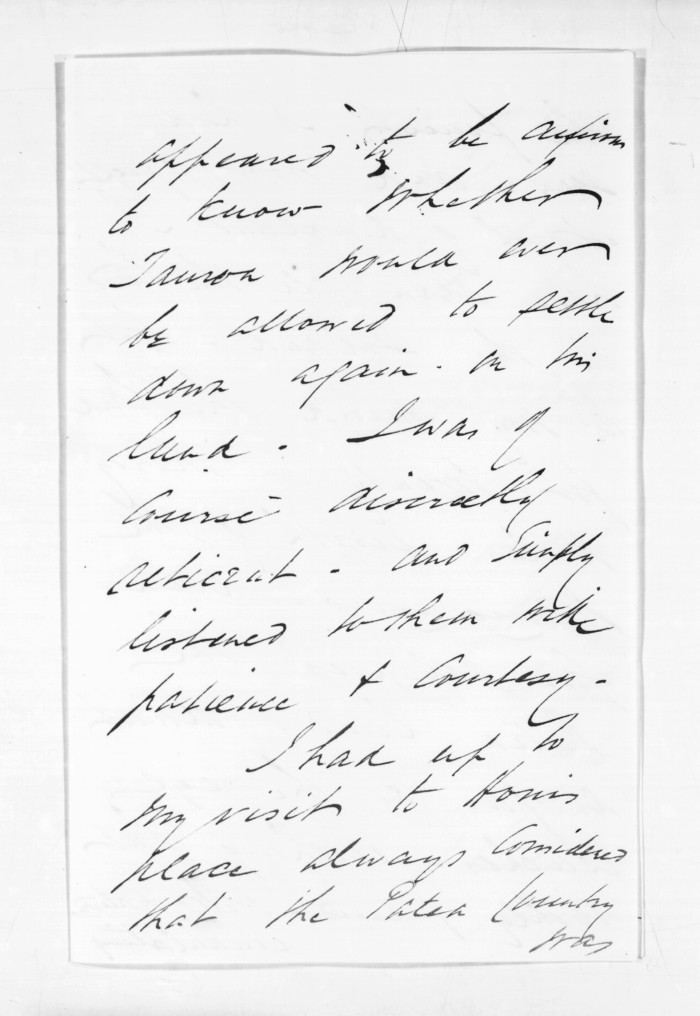 appeared to be anxious
to know whether
Tauroa would ever
be allowed to settle
down again. on his
land. I was of
course discreetly
reticent - and simply
listened to them with
patience & courtesy -
I had up to
my visit to Hone's
place always considered
that the Patea Country
was